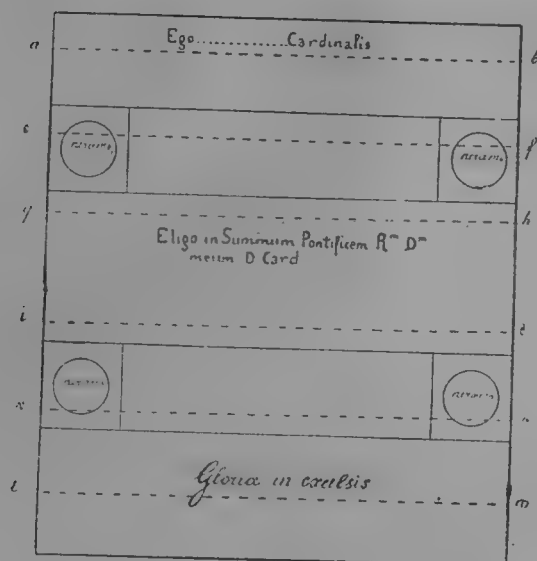 Ego............Cardinalis
a b
c f
g h
Eligo in Summum Pontificem Rᵐ Dᵐ
meum D Card
i
x
Gloria in excelsis
l m